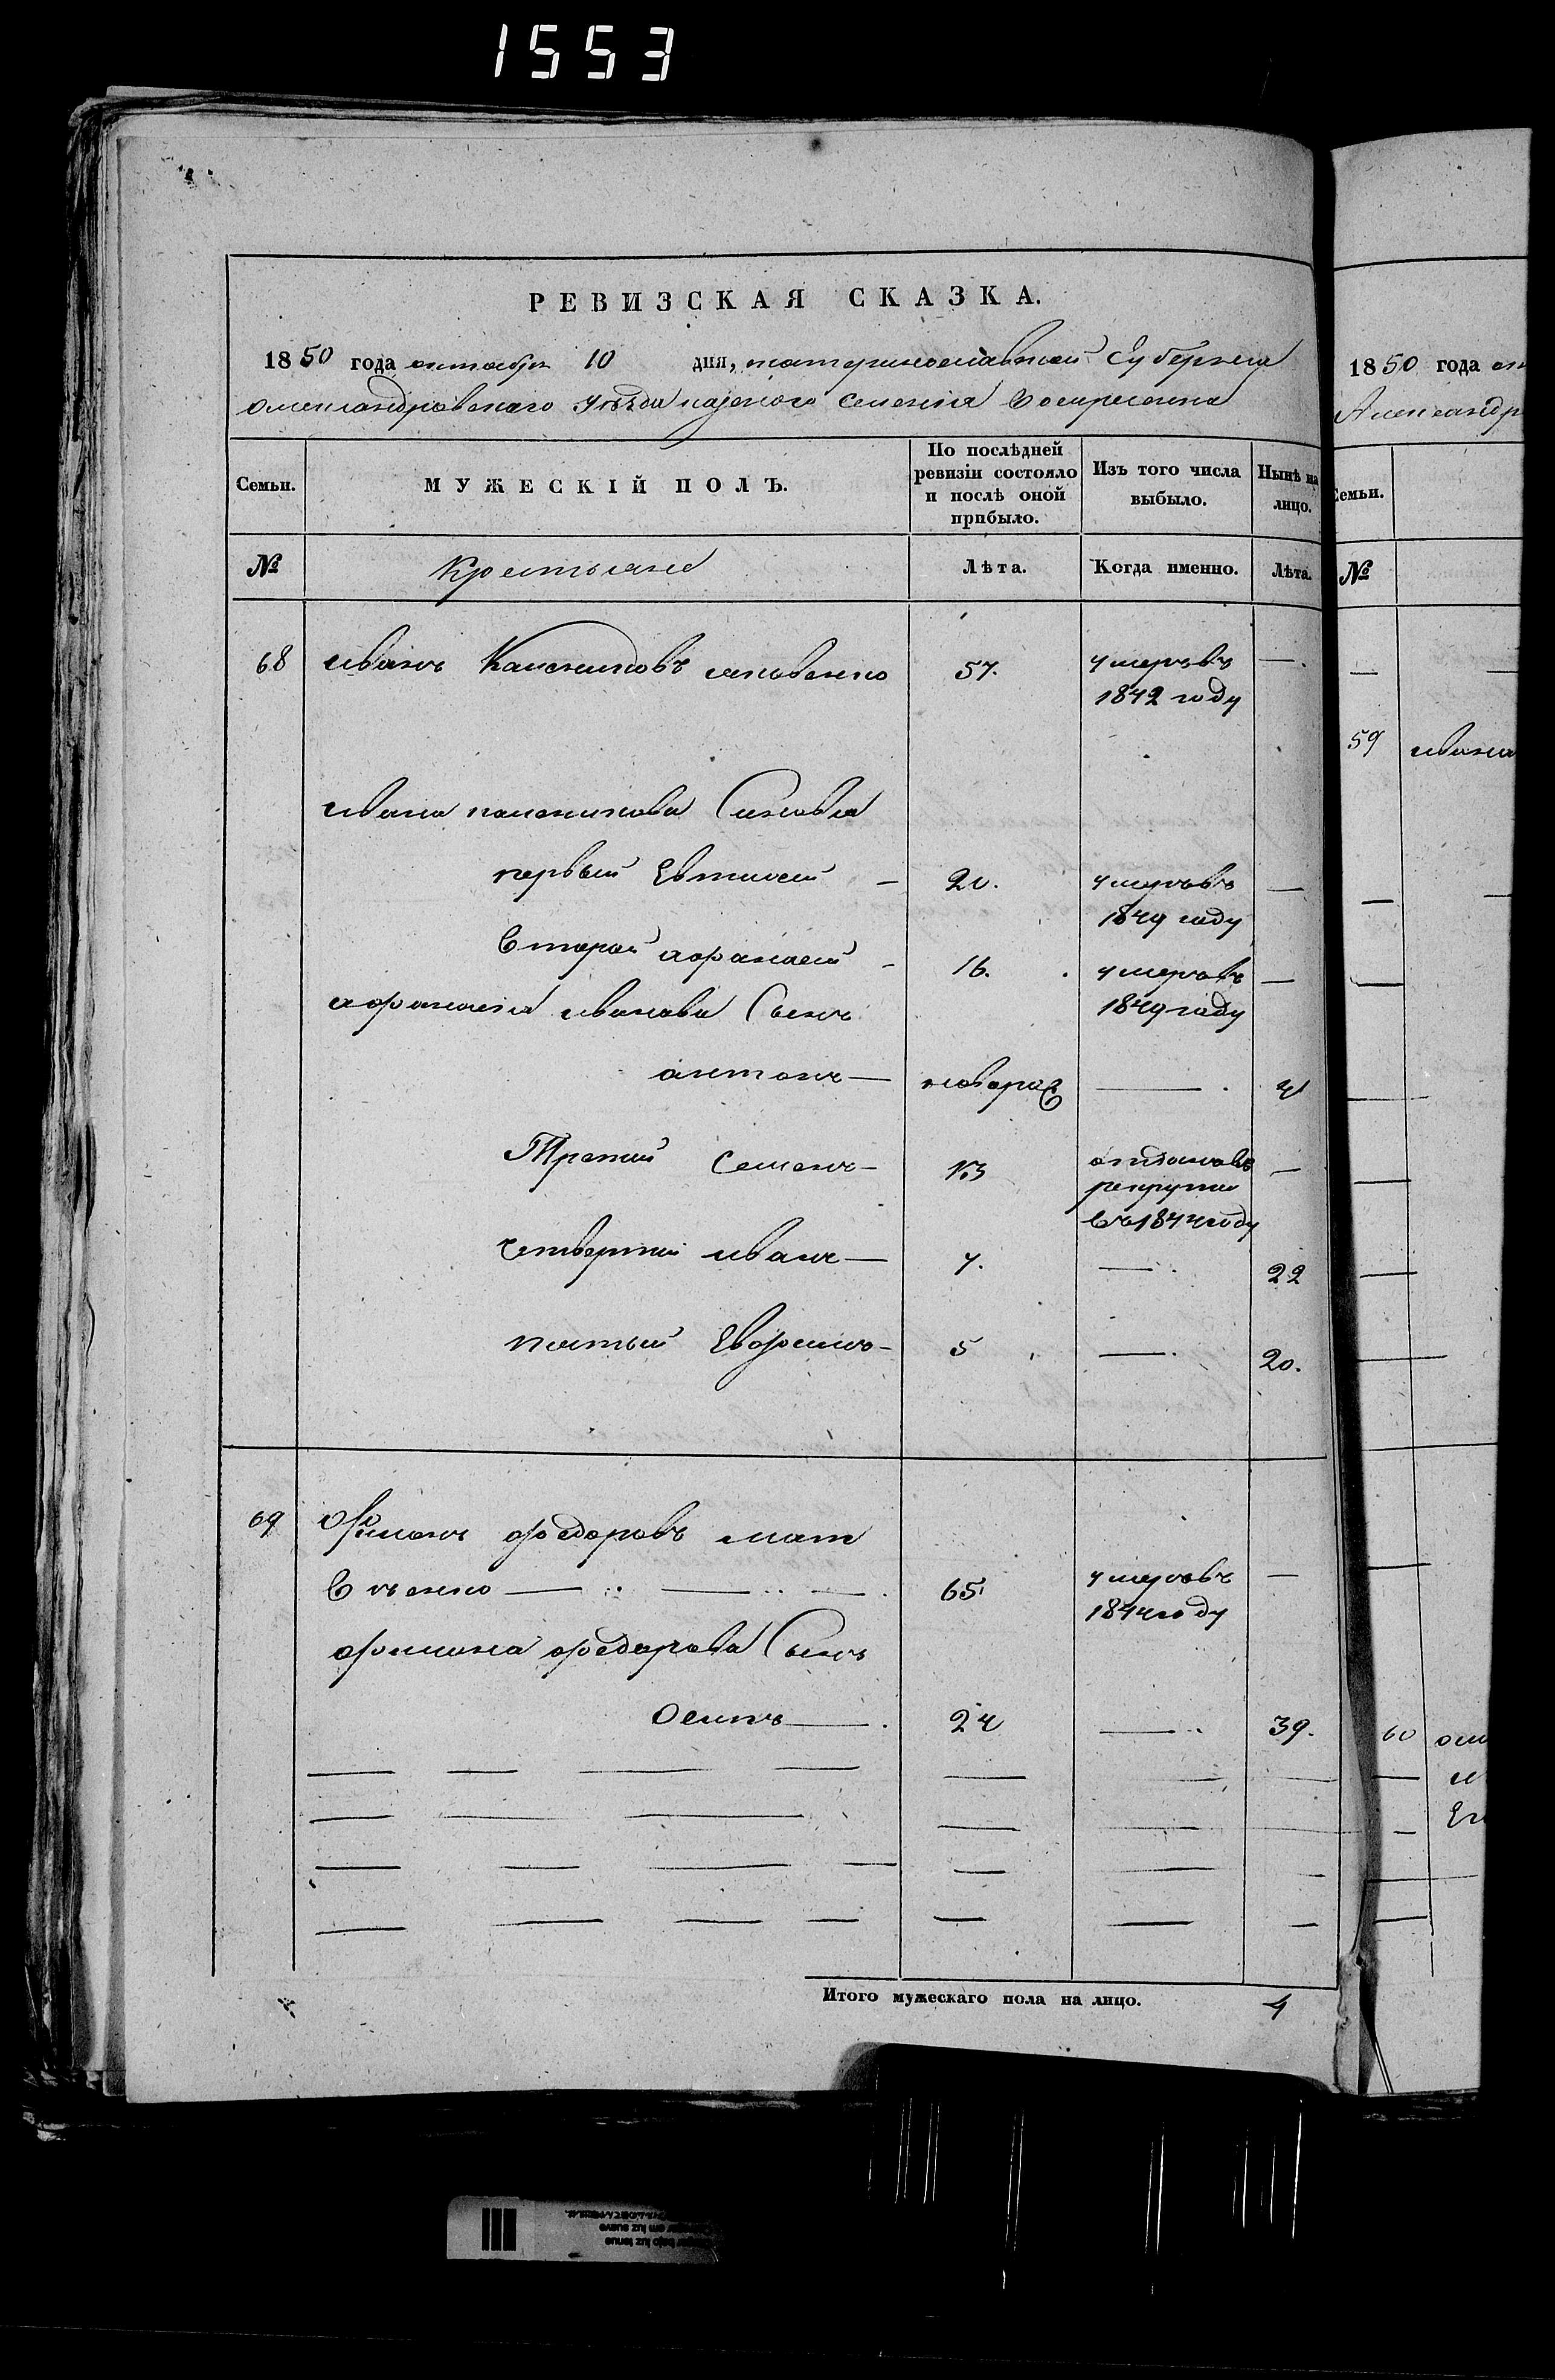 1553
РЕВИЗСКАЯ СКАЗКА.
1850 года октабря 10 дня, екатеринославской Губернии
Олександровскаго уѣзда казеного селения Воскресенка
Семьи.
МУЖЕСКІЙ ПОЛЪ.
По послѣдней ревизіи состояло и послѣ оной прибыло.
Изъ того числа выбыло.
Нынѣ на лицо.
№
Крестьяне
Лѣта.
Когда именно.
Лѣта.
68 иванъ яковенко 57. умеръ въ —.
1842 году
ивана синовья
первый Евтиѣй — 20. умеръ въ —
1849 году
Вторый афанасей - 16. умеръ въ —
афанасия иванова Сынъ 1849 году
антонъ — новорож — 4
Третий Семенъ — 13 отдановъ —
рекруты
въ 1844 году
четвертий иванъ — 7. — 22
пятый Ефримъ - 5 — 20.
69 Филионъ федоровъ мат
Вѣенко — 65. умеръ въ —
1844 году
федорова Сынъ
Осипъ — 24 — 39.
Итого мужескаго пола на лицо. 4
1850 года ок
Александр
Семьи.
№
59 ивана
60 оси
и
Ег